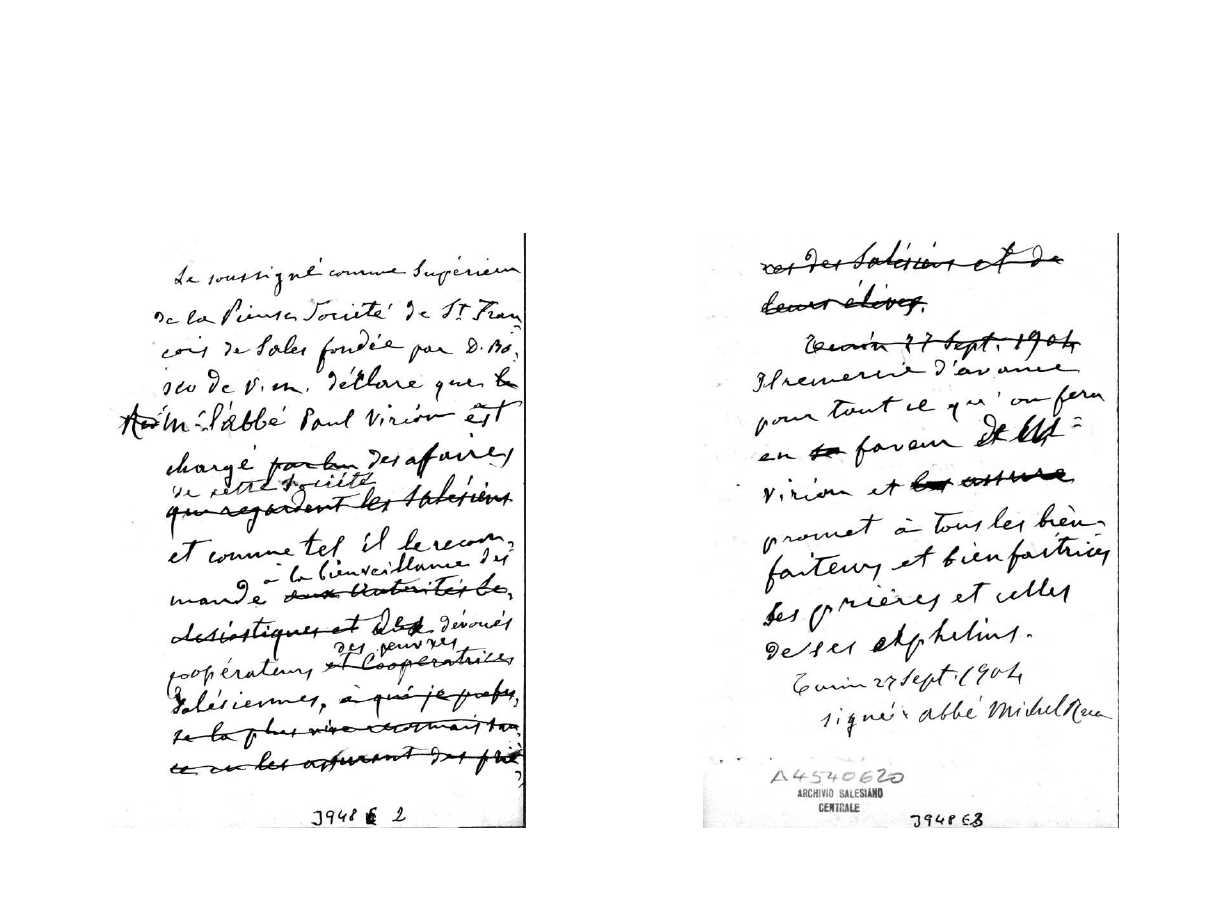 Le soussigné comme Supérieur
de la Pieuse Société de St Fran
çois de Sales fondée par D. Bo,
sco de v. m. déclare que le
M. l'abbé Paul Virion est
chargé par lui des affaires
de cette Société
qui regardent les Salésiens
et comme tel il le recom,
à la bienveillance des
mande aux Autorités Ec,
clésiastiques et dévoués
des œuvres
coopérateurs et Coopératrices
Salésiennes, à qui je profes,
se la plus vive reconnaissan
ce en les assurant des priè
J948 E 2
res des Salésiens et de
leurs élèves.
Turin 27 Sept. 1904
Il remercie d'avance
pour tout ce qu'on fera
en sa faveur de M
Virion et les assure
promet à tous les bien-
faiteurs et bienfaitrices
ses prières et celles
de ses orphelins.
Turin 27 Sept. 1904
signé: abbé Michel Rua
A4540620
ARCHIVIO SALESIANO
CENTRALE
J948 E3